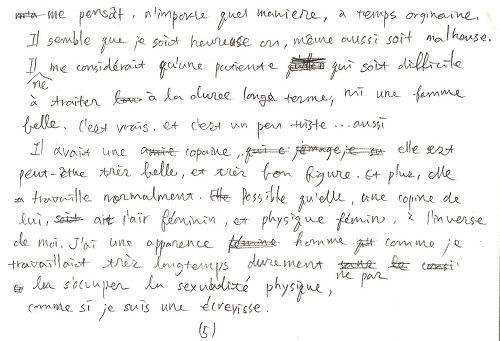 me pensât, n'importe quel manière, à temps originaire.
Il semble que je soit heureuse ou, même aussi soit malheuse.
Il ne me considérait qu'une patiente qui soit difficile
à traiter à la duree longs terme, ni une femme
belle. C'est vrais. et c'est un peu triste ... aussi
Il avait une copaine, elle est
peut-être très belle, et très bon figure. Et plus, elle
travaille normalment. Possible qu'elle, une copine de
lui, ait l'air féminin, et physique féminin, à l'inverse
de moi. J'ai une apparence homme comme je
travaillait très longtemps durement ne pas
s'occuper la sexualité physique,
comme si je suis une écrevisse.
(5)